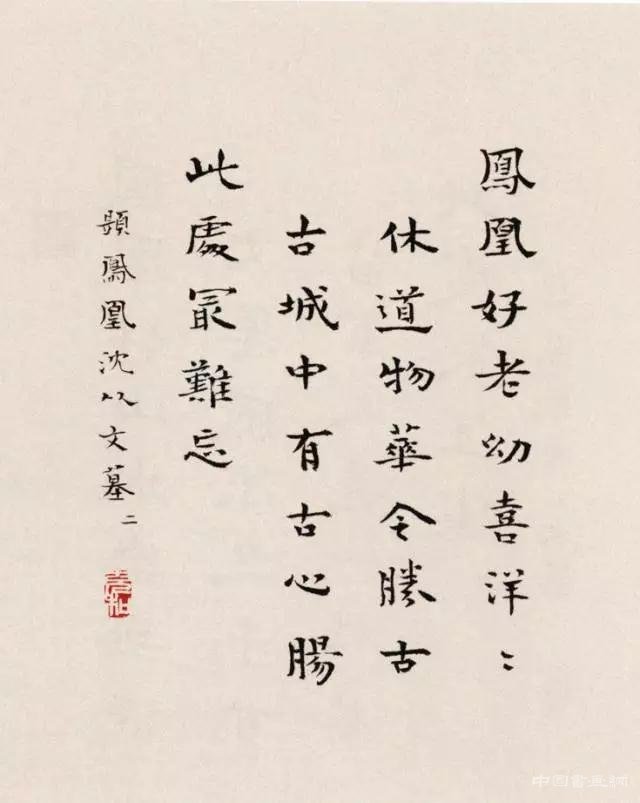 鳳凰好老幼喜洋〻
休道物華今勝古
古城中有古心腸
此處冣難忘
題鳳凰沈从文墓 二
中国書画網